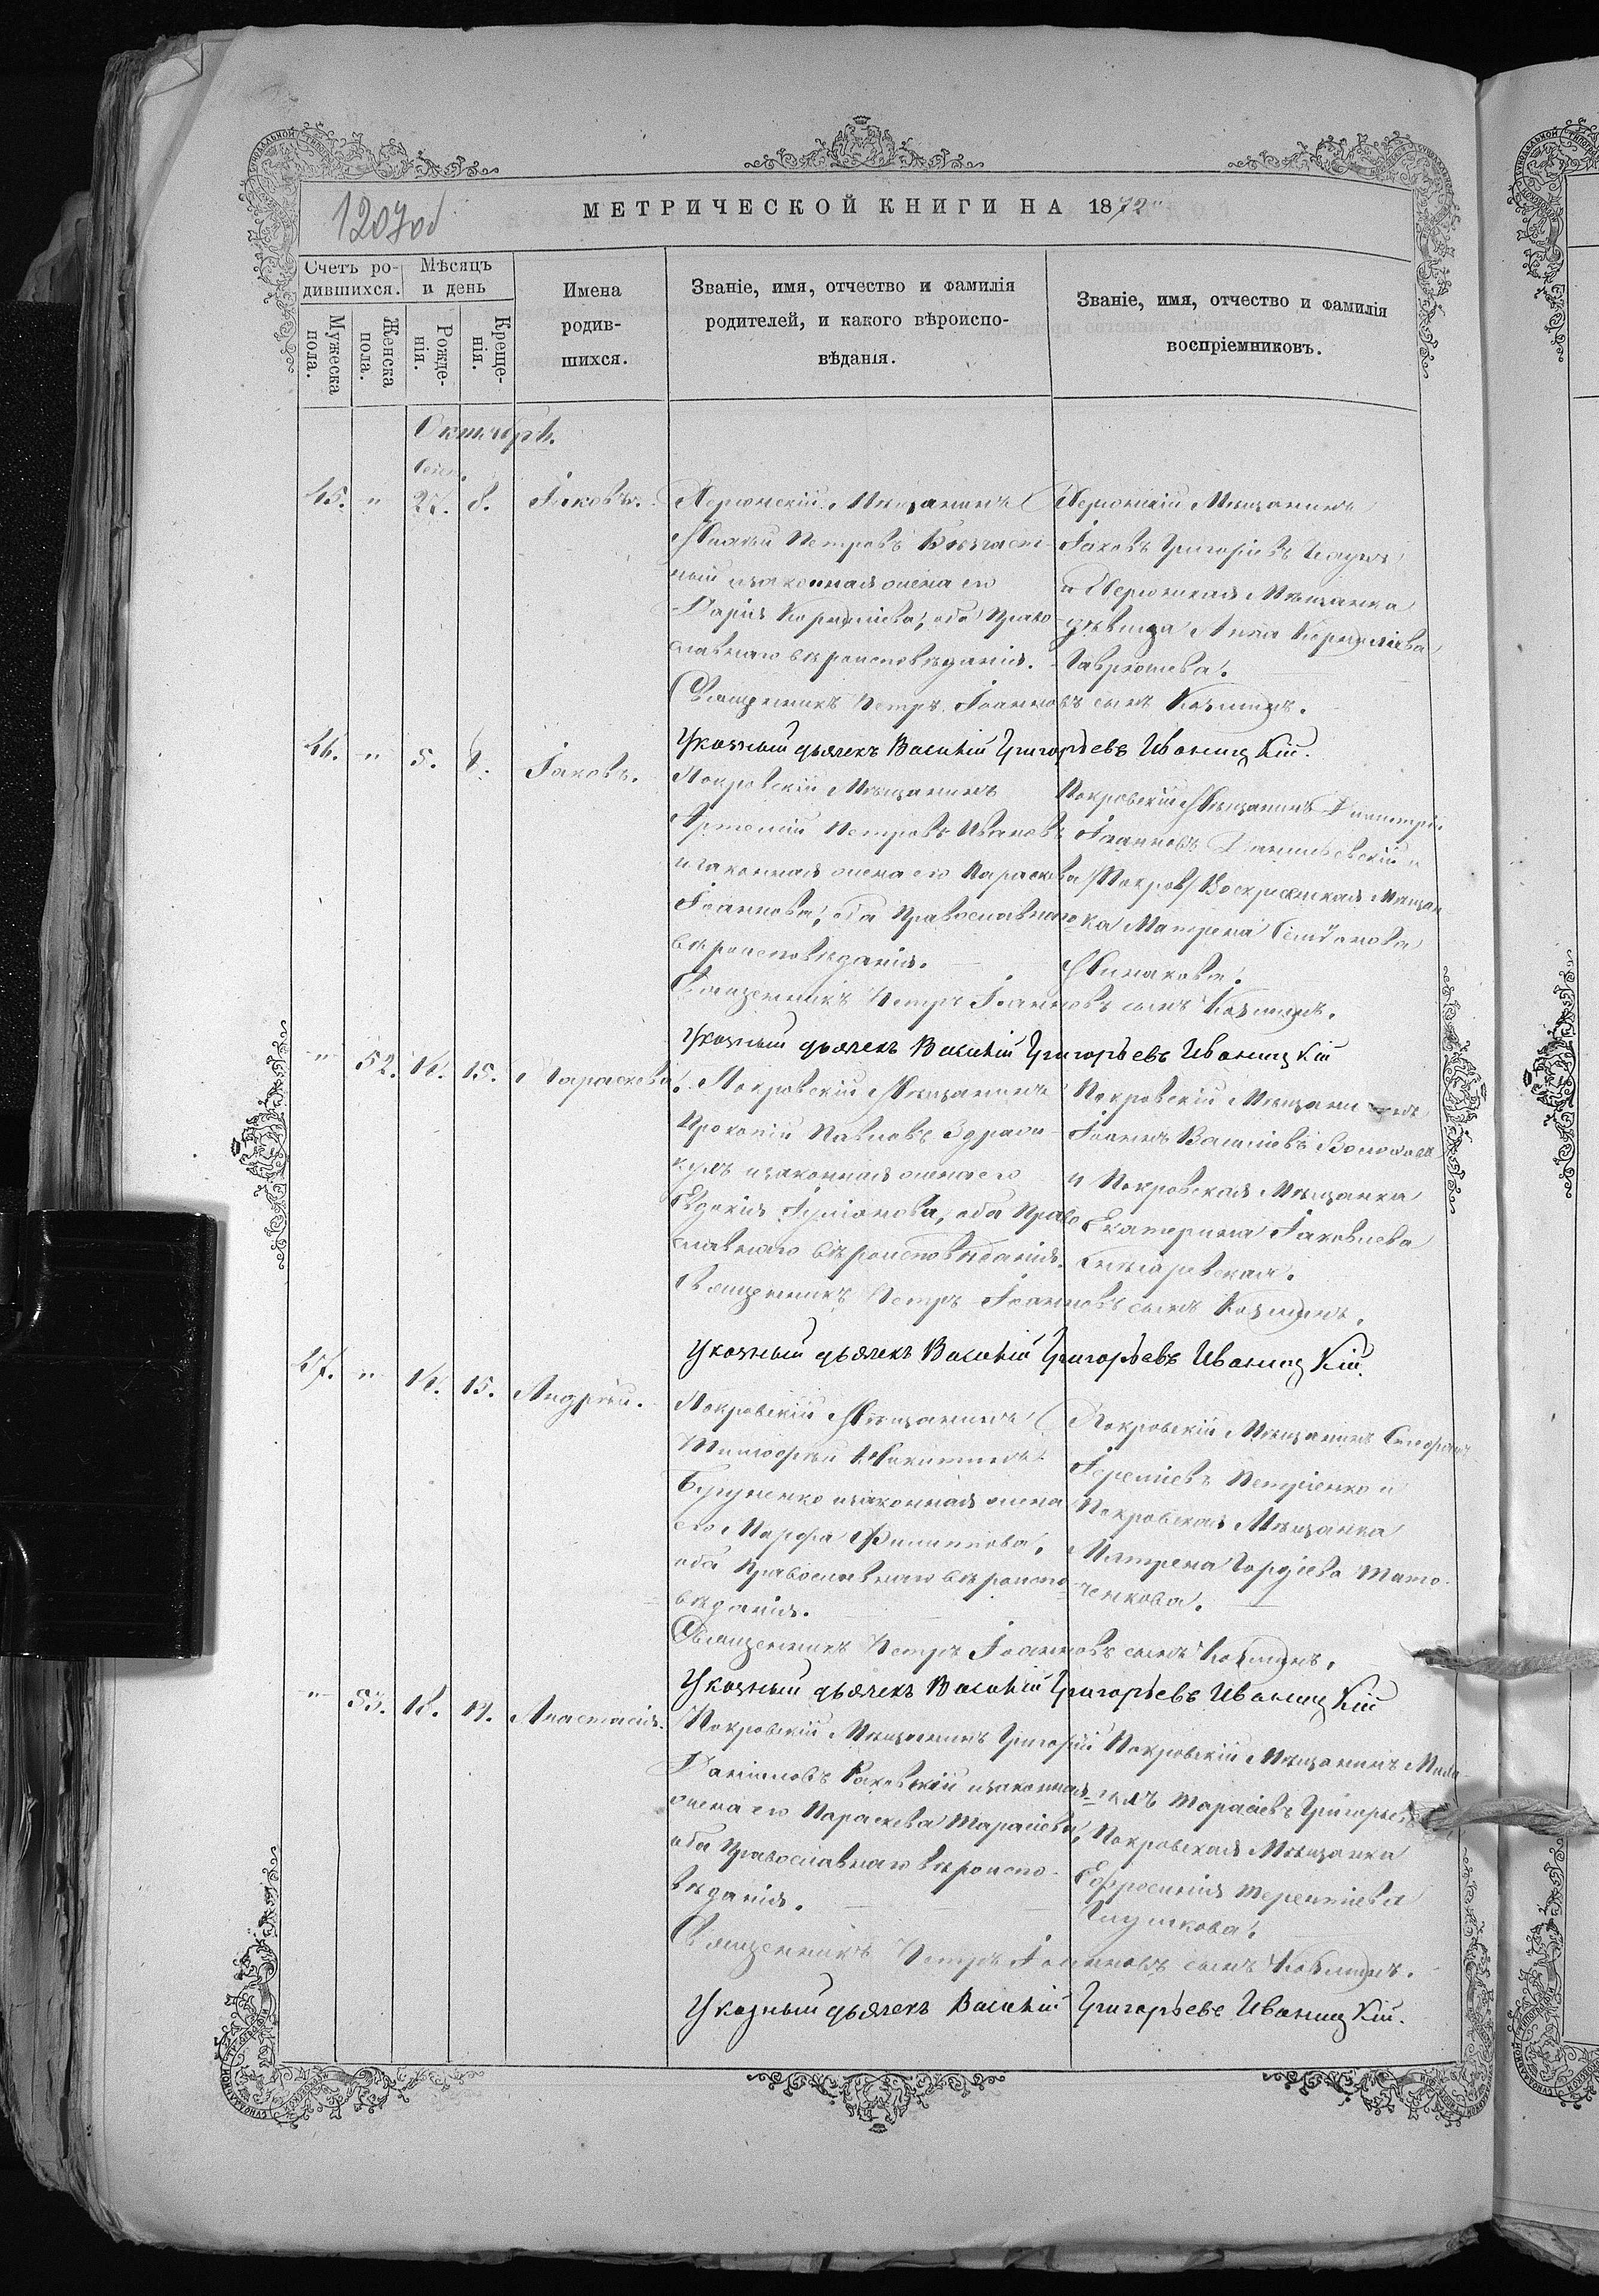 МЕТРИЧЕСКОЙ КНИГИ НА 1872
1207об
Счетъ ро-
дившихся.
Мужеска
пола.
Женска
пола.
Мѣсяцъ
и день
Рожде-
нія.
Креще-
нія.
Имена
родив-
шихся.
Званіе, имя, отчество и фамилія
родителей, и какого вѣроиспо-
вѣданія.
Званіе, имя, отчество и фамилія
воспріемниковъ.
Октябрь.
45. " 27. 8. Іаковъ.
Мѣщанинъ
Петровъ
ный и законная жена его
Дарія Корниліева, оба Право
славнаго вѣроисповѣданія.
Мѣщанинъ
Іаковъ Григоріевъ
и Мѣщанка
дѣвица Анна Корниліева
Гаврюшева.
Священникъ Петръ Іоанновъ сынъ
Указный дьячекъ Василій Григорьевъ Иваницкій.
46. " 5. 8. Іаковъ.
Покровскій Мѣщанинъ
Артемій Петровъ Ивановъ
и законная жена его Параскева
Іоаннова, оба Православнаго
вѣроисповѣданія.
Покровскій Мѣщанинъ Димитрій
Іоанновъ Данилевскій и
Мѣщан
ка Матрена
Священникъ Петръ Іоанновъ сынъ
Указный дьячекъ Василій Григорьевъ Иваницкій
" 52. 14. 15. Параскева.
Покровскій Мѣщанинъ
Прокопій Павловъ
и законная жена его
Евдокія оба Право
славнаго вѣроисповѣданія.
Покровскій Мѣщанинъ
Іоаннъ Василіевъ
и Покровская Мѣщанка
Екатерина Іаковлева
Священникъ Петръ Іоанновъ сынъ
Указный дьячекъ Василій Григорьевъ Иваницкій.
47. " 14. 15. Андрей.
Покровскій Мѣщанинъ
Тимофей Никитинъ
и законная жена
его Марфа Филиппова,
оба Православнаго вѣроиспо
вѣданія.
Покровскій Мѣщанинъ Стефанъ
Іереміевъ Петріенко и
Покровская Мѣщанка
Матрена Гордіева
Священникъ Петръ Іоанновъ сынъ
Указный дьячекъ Василій Григорьевъ Иваницкій
" 53. 18. 19. Анастасія.
Покровскій Мѣщанинъ Григорій
Даніиловъ Раковскій и законная
жена его Параскева Тарасіева,
оба Православнаго вѣроиспо-
вѣданія.
Покровскій Мѣщанинъ
Тарасіевъ
Покровская Мѣщанка
Ефросинія Терентіева
Священникъ Петръ Іоанновъ сынъ
Указный дьячекъ Василій Григорьевъ Иваницкій.